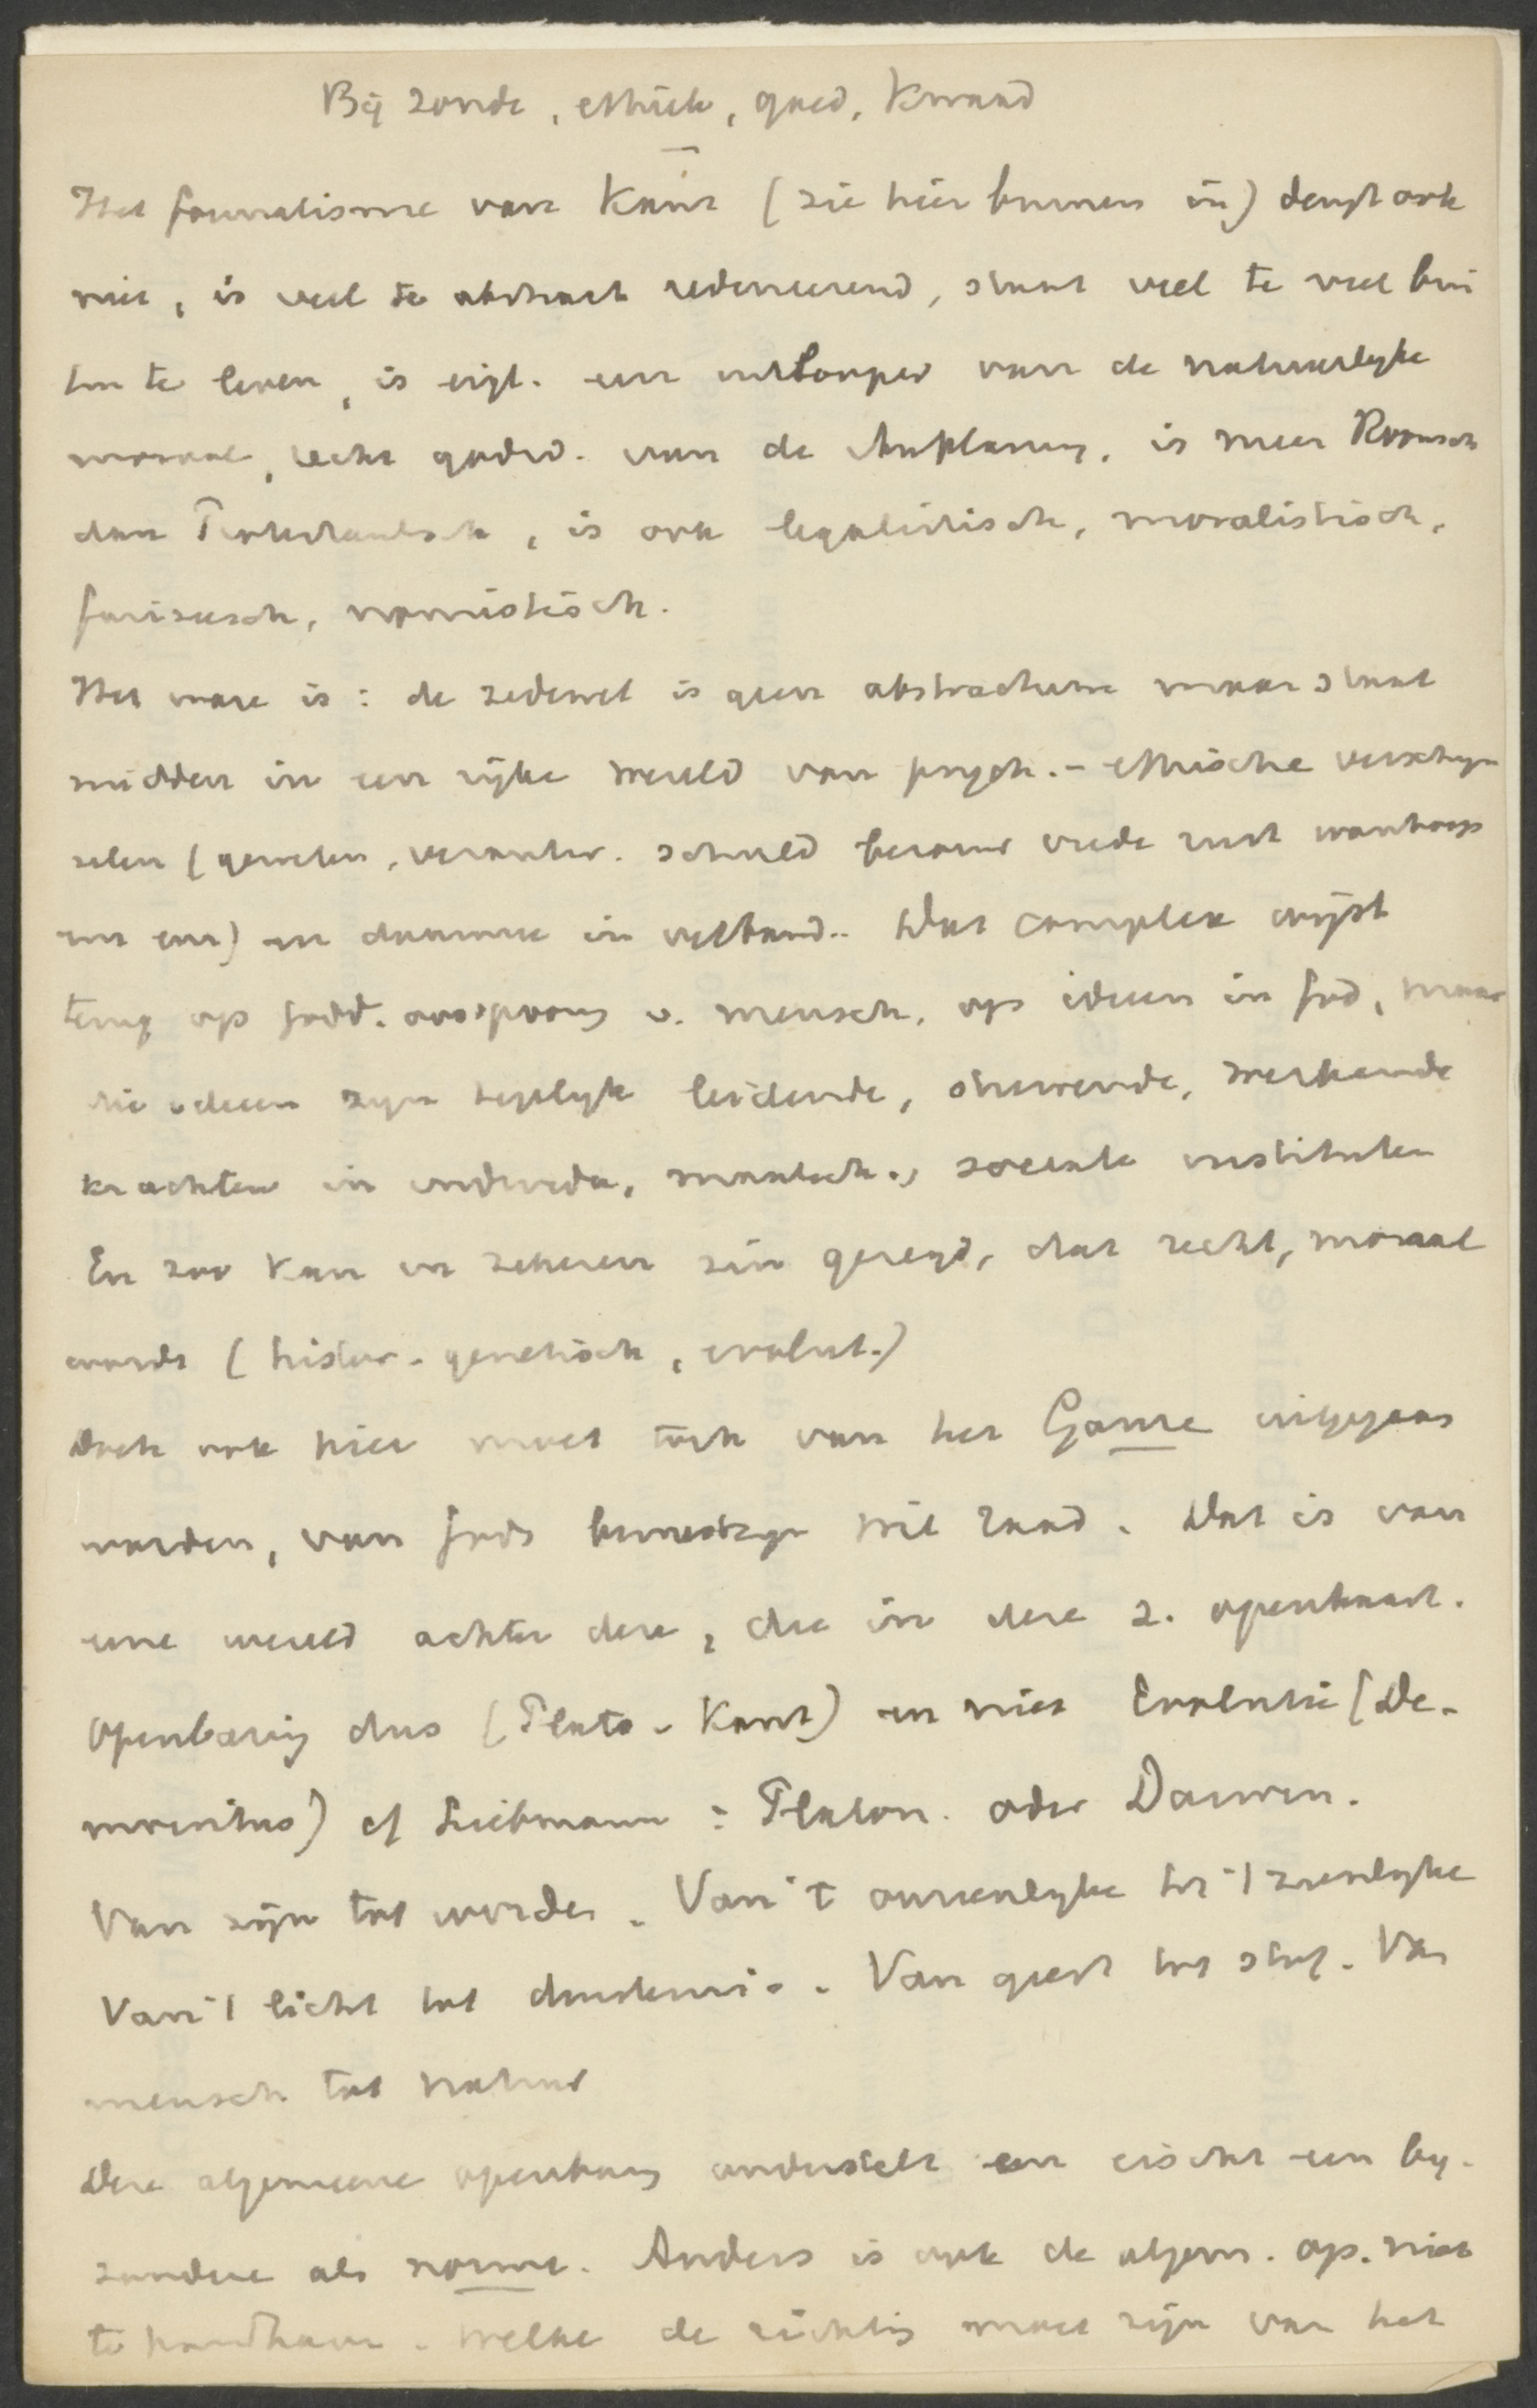 Bij zonde, ethiek, goed, kwaad
Het formalisme van Kant (zie hier binnen in) deugt ook
niet, is veel te abstract redeneerend, staat veel te veel bui
ten te leven, is eigl. een uitlooper van de natuurlyke
moraal, recht godsd. van de Aufklärung, is meer Roomsch
dan Protestantsch, is ook legalistisch, moralistisch,
farizeesch, nomistisch.
Het ware is: de zedewet is geen abstractum maar staat
midden in een rijke wereld van psych.-ethische verschyn
selen (geweten, verantw. schuld berouw vrede rust wanhoop
enz enz) en daarmee in verband.. Dat complex wijst
terug op godd. oorsprong v. mensch, op ideeen in God, maar
die ideeen zyn tegelyk leidende, sturende, werkende
krachten in individu, maatsch., sociale instituten
En zoo kan in zekeren zin gezegd, dat recht, moraal
wordt (histor.-genetisch, evolut.)
Doch ook hier moet toch van het Ganze uitgegaan
worden, van Gods bewustzyn wil raad. Dat is van
eene wereld achter deze, die in deze z. openbaart.
Openbaring dus (Plato-Kant) en niet Evolutie (De-
mocritus) cf Liebmann: Platon. oder Darwin.
Van zijn tot worden. Van 't onzienlyke tot 't zienlyke
Van 't licht tot duisternis. Van geest tot stof. Van
mensch tot natuur
Deze algemeene openbarg onderstelt en eischt een by-
zondere als norme. Anders is ook de algem. op. niet
te handhaven. Welke de richting moet zijn van het